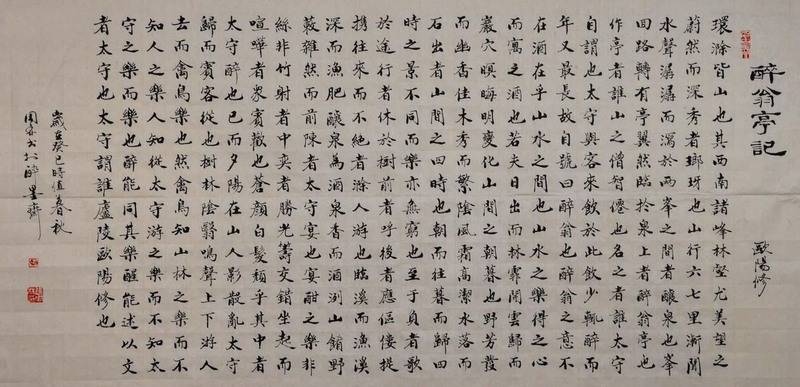 醉翁亭記
歐陽修
環滁皆山也其西南諸峰林壑尤美望之
蔚然而深秀者瑯琊也山行六七里漸聞
水聲潺潺而瀉於兩峯之間者釀泉也峯
回路轉有亭翼然臨於泉上者醉翁亭也
作亭者誰山之僧智僊也名之者誰太守
自謂也太守與客來飲於此飲少輒醉而
年又最長故自號曰醉翁也醉翁之意不
在酒在乎山水之間也山水之樂得之心
而寓之酒也若夫日出而林霏開雲歸而
巖穴暝晦明變化山間之朝暮也野芳發
而幽香佳木秀而繁陰風霜高潔水落而
石出者山間之四時也朝而往暮而歸四
時之景不同而樂亦無窮也至于負者歌
於途行者休於樹前者呼後者應傴僂提
攜往來而不絕者滁人游也臨溪而漁溪
深而漁肥釀泉為酒泉香而酒洌山餚野
蔌雜然而前陳者太守宴也宴酣之樂非
絲非竹射者中奕者勝光籌交錯坐起而
喧嘩者衆賓歡也蒼顏白髮頹乎其中者
太守醉也已而夕陽在山人影散亂太守
歸而賓客從也樹林陰翳鳴聲上下游人
去而禽鳥樂也然禽鳥知山林之樂而不
知人之樂人知從太守游之樂而不知太
守之樂而樂也醉能同其樂醒能述以文
者太守也太守謂誰廬陵歐陽修也
歲在癸巳時值春秋
书於醉墨齋